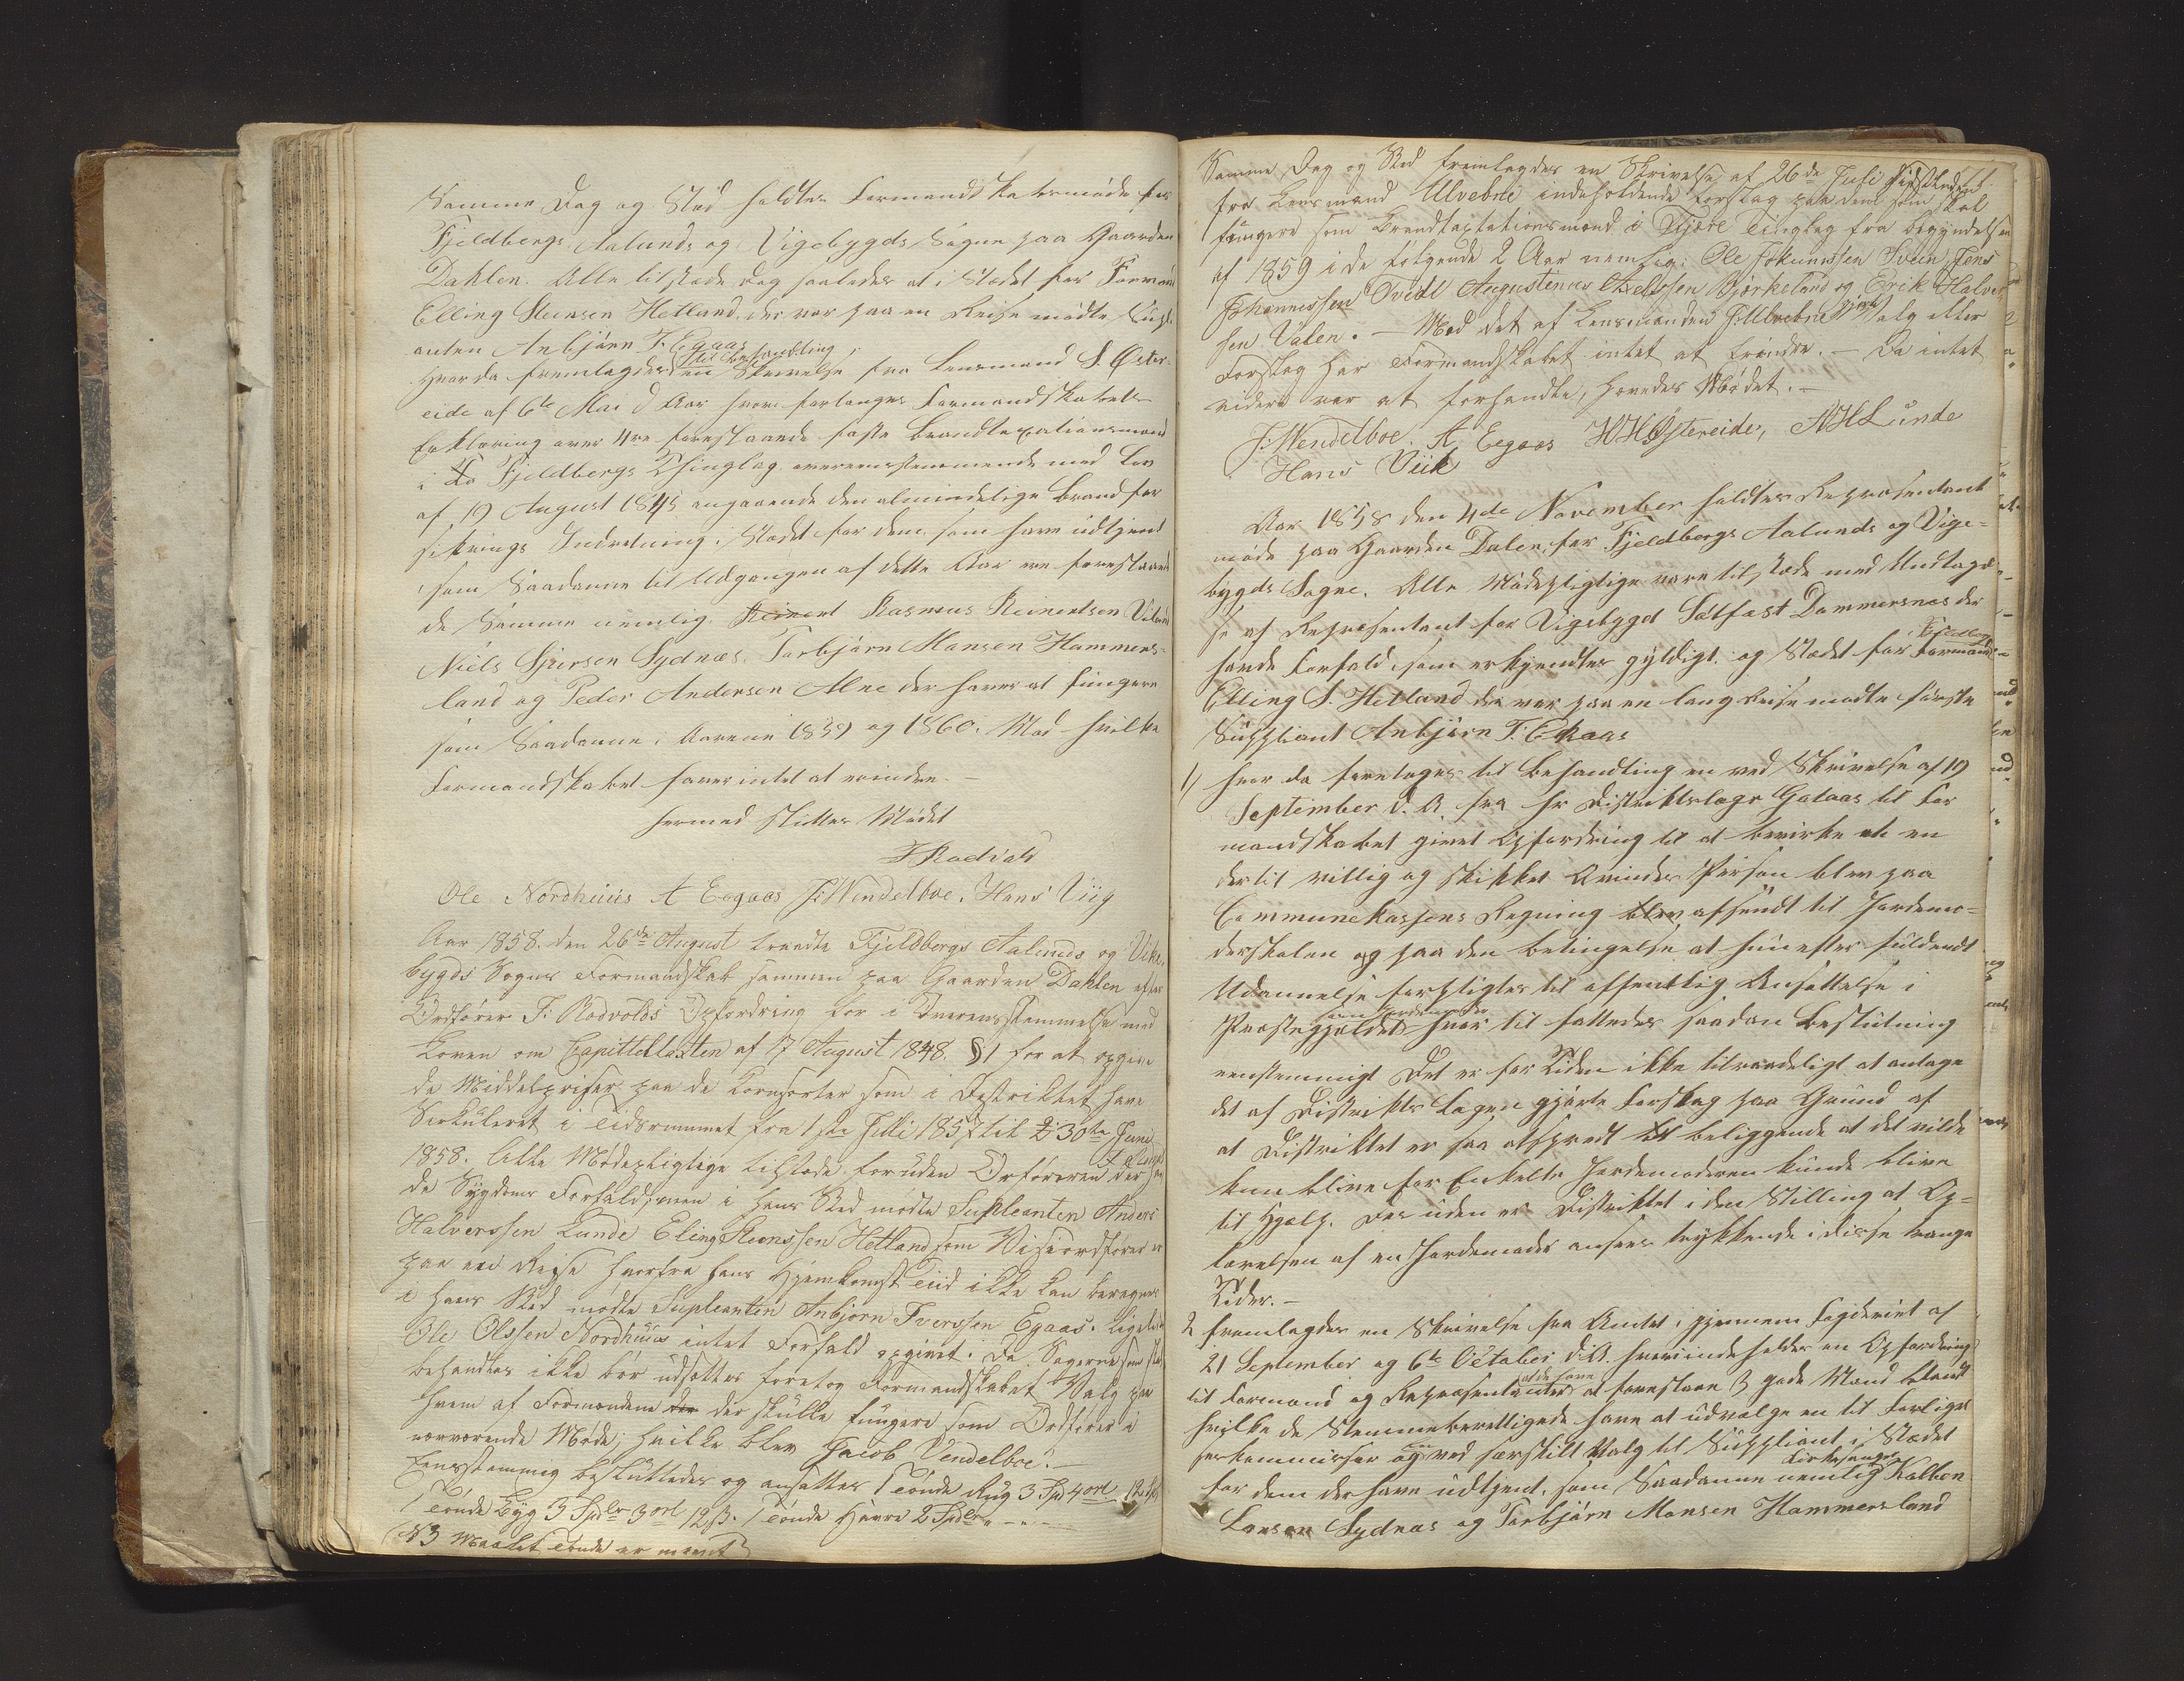 Samme Dag og Stæd holdtes Formandskabsmøde for
Fjeldbergs Aalunds og Vigebygds Sogne paa Gaarden
Dahlen. Alle tilstæde dog saaledes at i Stædet for Formand
Elling Steensen Hetland, der var paa en Reise mødte Supli-
anten Anbjørn T. Egaas
Hvor da fremlagdes til Behandling en Skrivelse fra Lensmand S. Øster-
eide af 6te Mai d Aar hvori forlanges Formandskabets
Erklæring over 4re foreslaaede faste Brandtaxationsmænd
i Fjeldbergs Thinglag overeensstemmende med Lov
af 19 August 1845 angaaende den almindelige Brandfor
sikrings Indretning i Stædet for dem som have udtjent
som Saadanne til Udgangen af dette Aar ere foreslaaed
de Samme nemlig Reinert Rasmus Reinertsen
Niels Sjursen Sydnæs, Torbjørn Mansen Hammers-
land og Peder Andersen Alne der haver at fungere
som Saadanne i Aarene 1859 og 1860. Mod hvilke
Formandskabet haver intet at erindre.–
Hermed sluttes Mødet
F Rødvold
Ole Nordhuus A Eegaas J: Wendelboe. Hans Viig
Aar 1858. den 26de August traadte Fjeldbergs Aalunds og Vike-
bygds Sognes Formandskab sammen paa Gaarden Dahlen efter
Ordfører F: Rødvolds Opfordring for i Overensstemmelse med
Loven om Capitteltaxten af 17 August 1848. § 1 for at opgive
de Middelpriser paa de Kornsorter som i Distriktet have
Serkuleret i Tidsrummet fra 1ste Julli 1857 til 30te Juni
1858. Alle Mødepligtige tilstæde foruden Orføreren der
de Sygdoms Forfald hvem i Hans Sted mødte Supleanten Anders
Halverssen Lunde Eling Steenssen Hetland som Viseordfører er
paa en Reise hvorfra hans Hjemkomst Tiid ikke kan beregnes
i Hans Sted mødte Supleanten Anbjørn Tverssen Egaas. Ligeledes
Ole Olssen Nordhuus intet Forfald opgivet. Da Sagerne som skal
behandles ikke bør udsættes foretog Formandskabet Valg paa
hvem af Formændene der der skulle fungere som Ordfører i
nærværende Møde; hvilke blev Jacob Vendelboe.–
Eensstemmig besluttedes og ansattes 1 Tønde Rug 3 Spd 4 ort 12 ß
1 Tønde Byg 3 Spdlr 3 ort 12 ß. 1 Tønde Havre 2 Spdlr
NB Maalet Tønde er meent
Samme Dag og Sted fremlagdes en Skrivelse af 26de Juli sidstleden
fra Lensmand Ulvebne indeholdende Forslag paa dem som skal
fungere som Brandtaxtationsmænd i Fjære Tinglag fra begyndelsen
af 1859 i de følgende 2 Aar nemlig: Ole Johannssen Sveen, Jens
Johannessen Tvedt Augustinus Axelssen Bjørkeland og Erik Halver
sen Valen. – Mod det af Lensmanden J: Ulvebne gjorte Valg eller
Forslag har Formandskabet intet at erindre. – Da intet
videre var at forhandle, hævedes Mødet.–
J: Wendelboe. A Eegaas HH Østereide, AH Lunde
Hans Viik
Aar 1858 den 4de November holdtes Repræsentant
møde paa Gaarden Dalen for Fjeldbergs Aalunds og Vige-
bygds Sogne. Alle Mødepligtige vare tilstæde med Undtagel-
se af Repræsentant for Vigebygd Sølfast Dommersnes der
havde Forfald, som erkjendtes gyldigt. og Stædet for Formand
Elling S. Hetland der var paa en lang Reise mødte første
Suppliant Anbjørn T. Ekaas
1/ hvor da foretages til Behandling en ved Skrivelse af 19
September d. A. fra Hr Distriktslæge Galaas til For
mandskabet givet Opfordring til at bevirke at en
dertil villig og skikket Qvinde Person blev paa
Communekassens Regning blev afsendt til Jordemo-
derskolen og paa den Betingelse at hun efter fuldendt
Udannelse forpligtes til offentlig Ansættelse i
Præstegjeldet som Jordemoder hvor til fattedes saadan Beslutning
eenstemmigt Det er for Tiden ikke tilraadeligt at antage
det af Distrikts Lægen gjorte Forslag paa Grund af
at Distriktet er saa atspredt til beliggende at det vilde
kun blive for Enkelte Jordemoderen kunde blive
til Hjælp. Des uden er Distriktet i den Stilling at Op-
lærelsen af en Jordemoder ansees trykkende i disse trange
Tider.–
2 fremlagdes en Skrivelse fra Amtet, gjennem Fogderiet af
21 September og 6te October d. A. hvori indeholdes en Opfordring
til Formænd og Repræsentanter at de have at foreslaae 3 gode Mænd blandt
hvilke de Stemmeberettigede have at udvælge en til Forligel
seskommissær og ved særskilt Valg til Suppliant i Stædet
for dem der have udtjent, som Saadanne nemlig Kirkesanger Kolben
Larsen Sydnæs og Torbjørn Monsen Hammersland